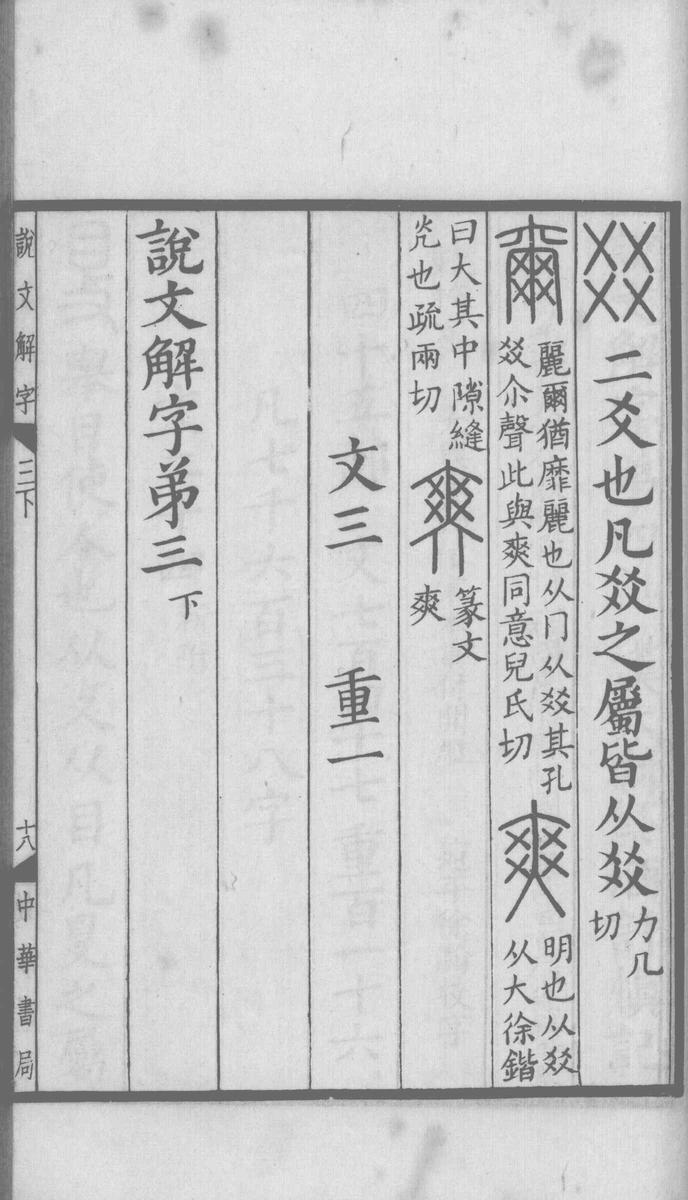 㸚二爻也凡㸚之屬皆从㸚力几
切
爾麗爾猶靡麗也从冂从㸚其孔
㸚尒聲此與爽同意兒氏切
爽明也从㸚
从大徐鍇
曰大其中隙縫
㸒也疏兩切
爽篆文
爽
文三 重一
說文解字弟三下
說文解字 三下 十八 中華書局